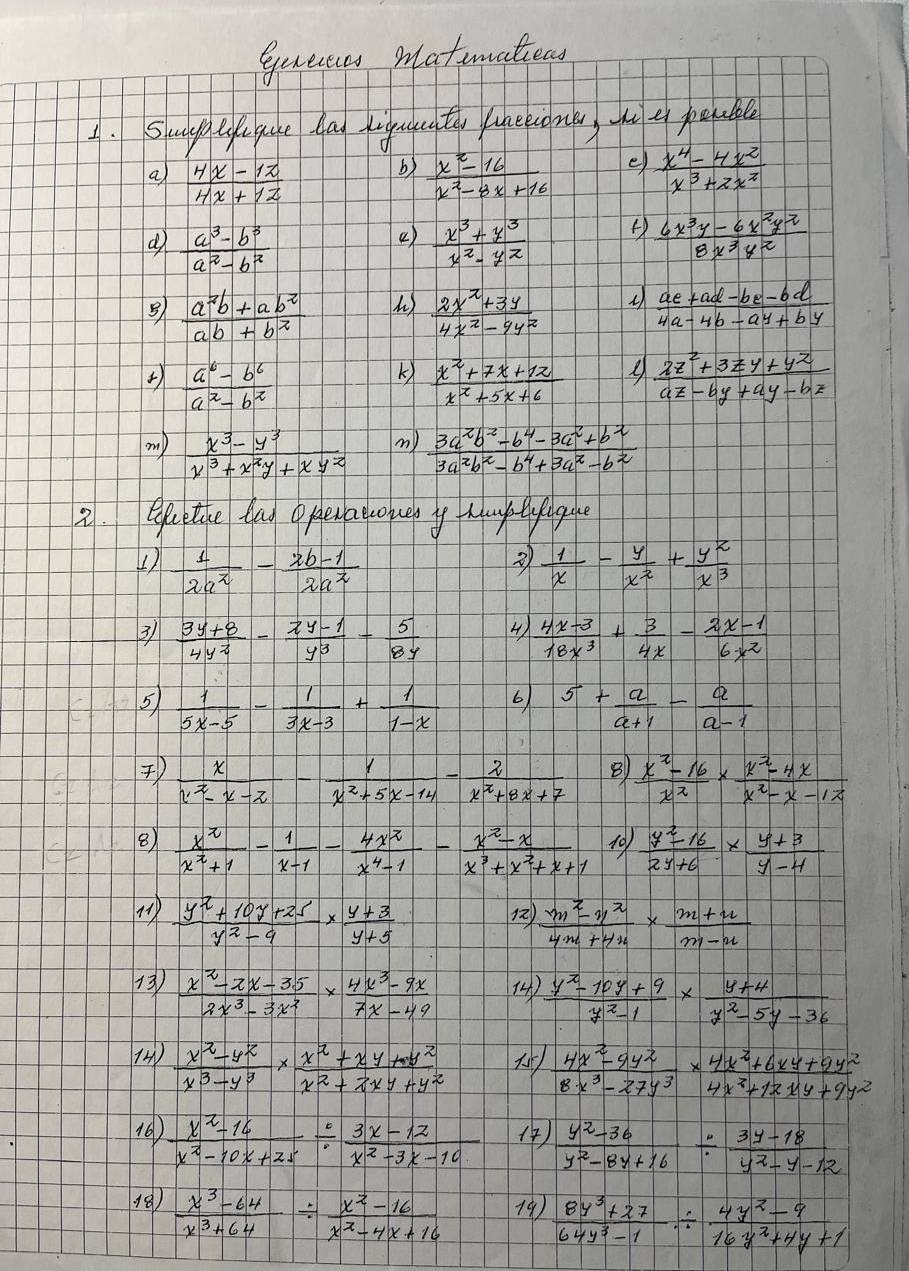 Ejercicios Matematicas
1. Simplifique las siguientes fracciones, si es posible
a) (4x - 12)/(4x + 12) b) (x² - 16)/(x² - 8x + 16) c) (x⁴ - 4x²)/(x³ + 2x²)
d) (a³ - b³)/(a² - b²) e) (x³ + y³)/(x² - y²) f) (6x³y - 6x²y²)/(8x³y²)
g) (a²b + ab²)/(ab + b²) h) (2x² + 3y)/(4x² - 9y²) i) (ac + ad - bc - bd)/(4a - 4b - ay + by)
j) (a⁶ - b⁶)/(a² - b²) k) (x² + 7x + 12)/(x² + 5x + 6) l) (2z² + 3zy + y²)/(az - by + ay - bz)
m) (x³ - y³)/(x³ + x²y + xy²) n) (3a²b² - b⁴ - 3a² + b²)/(3a²b² - b⁴ + 3a² - b²)
2. Efectue las Operaciones y simplifique
1) 1/(2a²) - (2b - 1)/(2a²) 2) 1/x - y/x² + y²/x³
3) (3y + 8)/(4y²) - (2y - 1)/y³ - 5/(8y) 4) (4x - 3)/(18x³) + 3/(4x) - (2x - 1)/(6x²)
5) 1/(5x - 5) - 1/(3x - 3) + 1/(1 - x) 6) 5 + a/(a + 1) - a/(a - 1)
7) x/(x² - x - 2) - 1/(x² + 5x - 14) - 2/(x² + 8x + 7) 8) (x² - 16)/x² × (x² - 4x)/(x² - x - 12)
8) x²/(x² + 1) - 1/(x - 1) - 4x²/(x⁴ - 1) - (x² - x)/(x³ + x² + x + 1) 10) (y² - 16)/(2y + 6) × (y + 3)/(y - 4)
11) (y² + 10y + 25)/(y² - 9) × (y + 3)/(y + 5) 12) (m² - n²)/(4m + 4n) × (m + n)/(m - n)
13) (x² - 2x - 35)/(2x³ - 3x²) × (4x³ - 9x)/(7x - 49) 14) (y² - 10y + 9)/(y² - 1) × (y + 4)/(y² - 5y - 36)
14) (x² - y²)/(x³ - y³) × (x² + xy + y²)/(x² + 2xy + y²) 15) (4x² - 9y²)/(8x³ - 27y³) × (4x² + 6xy + 9y²)/(4x² + 12xy + 9y²)
16) (x² - 16)/(x² - 10x + 25) ÷ (3x - 12)/(x² - 3x - 10) 17) (y² - 36)/(y² - 8y + 16) ÷ (3y - 18)/(y² - y - 12)
18) (x³ - 64)/(x³ + 64) ÷ (x² - 16)/(x² - 4x + 16) 19) (8y³ + 27)/(64y³ - 1) ÷ (4y² - 9)/(16y² + 4y + 1)